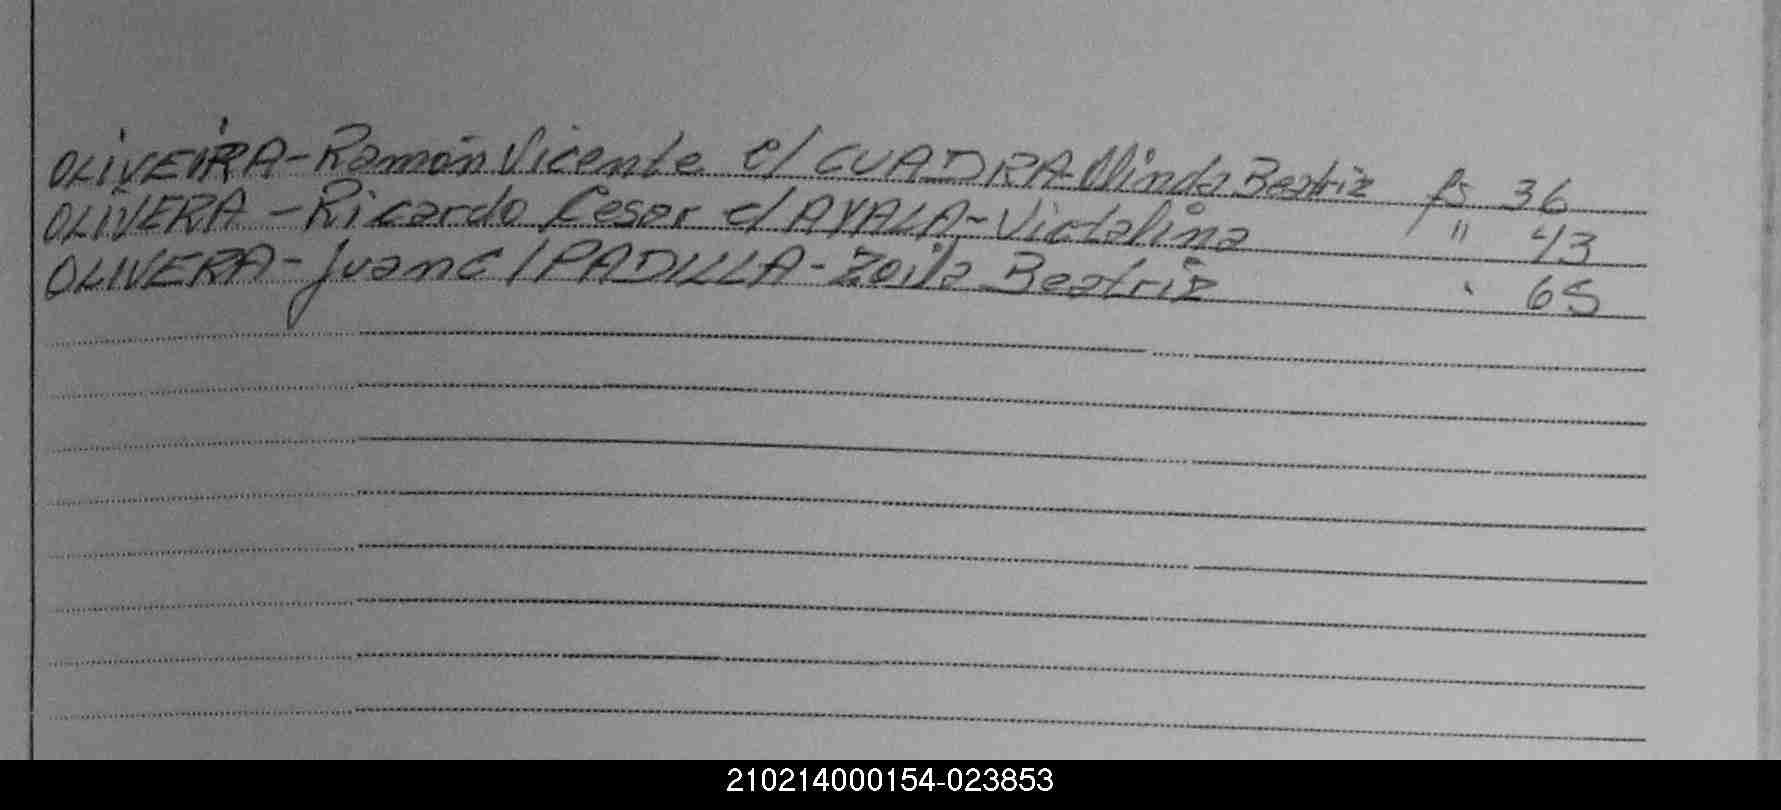 OLIVEIRA - Ramón Vicente c/ CUADRA - Olinda Beatriz fs 36
OLIVERA - Ricardo Cesar c/ AYALA - Victalina " 43
OLIVERA - Juan c/ PADILLA - Zoila Beatriz " 65
210214000154-023853